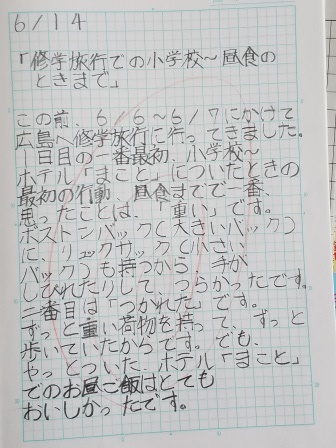 6/14
「修学旅行での小学校～昼食の
ときまで」
この前、6/6～6/7にかけて
広島へ修学旅行に行ってきました。
1日目の一番最初、小学校～
ホテル「まこと」についたときの
最初の行動、昼食までで一番、
思ったことは、「重い」です。
ボストンバック(大きいバック)
に、リュックサック(小さい
バック)も持つから、手が
しびれたりして、つらかったです。
二番目は「つかれた」です。
ずっと重い荷物を持って、ずっと
歩いていたからです。でも、
やっとついた、ホテル「まこと」
でのお昼ご飯はとても
おいしかったです。